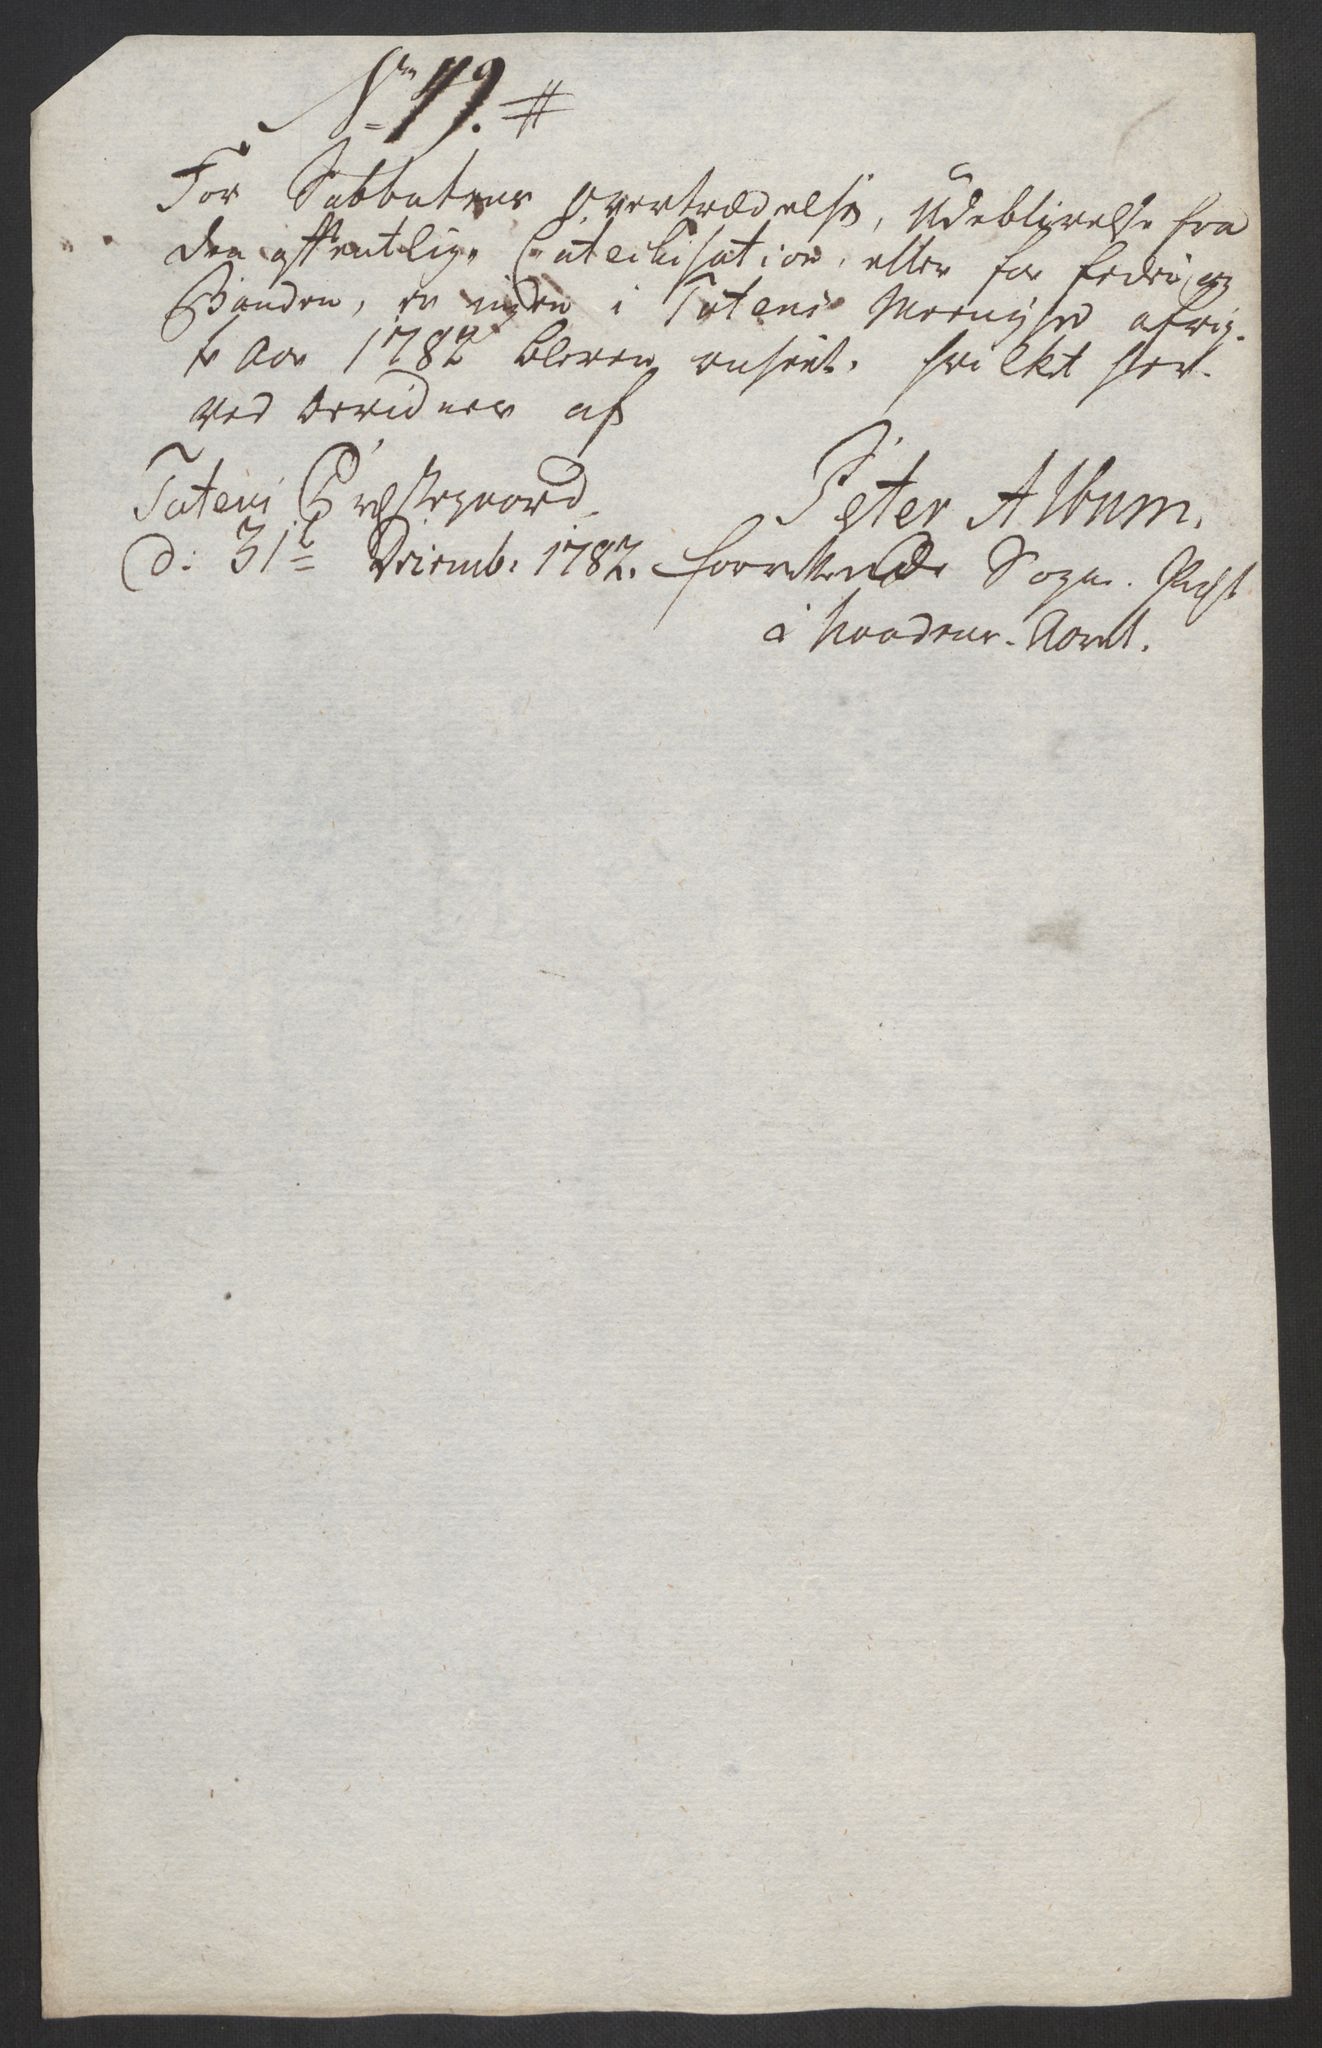 No 79. #
For Sabbatens Overtrædelse, Udeblivelse fra
den offentlige Catechisation, eller for Ederi og
Banden, er ingen i Totens Menighed afvig-
te Aar 1782 bleven anseet. hvilket her-
ved bevidnes af
Totens Præstegaard
d: 31te Decemb: 1782.
Peter Album.
forrettende Sogne-Præst
i Naadens-Aaret.